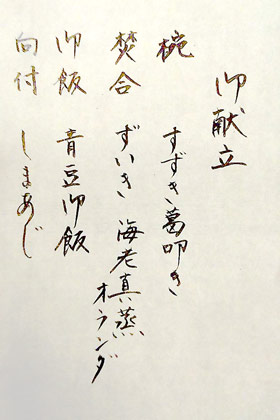 御献立
椀 すずき葛叩き
焚合 ずいき 海老真蒸
オランダ
御飯 青豆御飯
向付 しまあじ